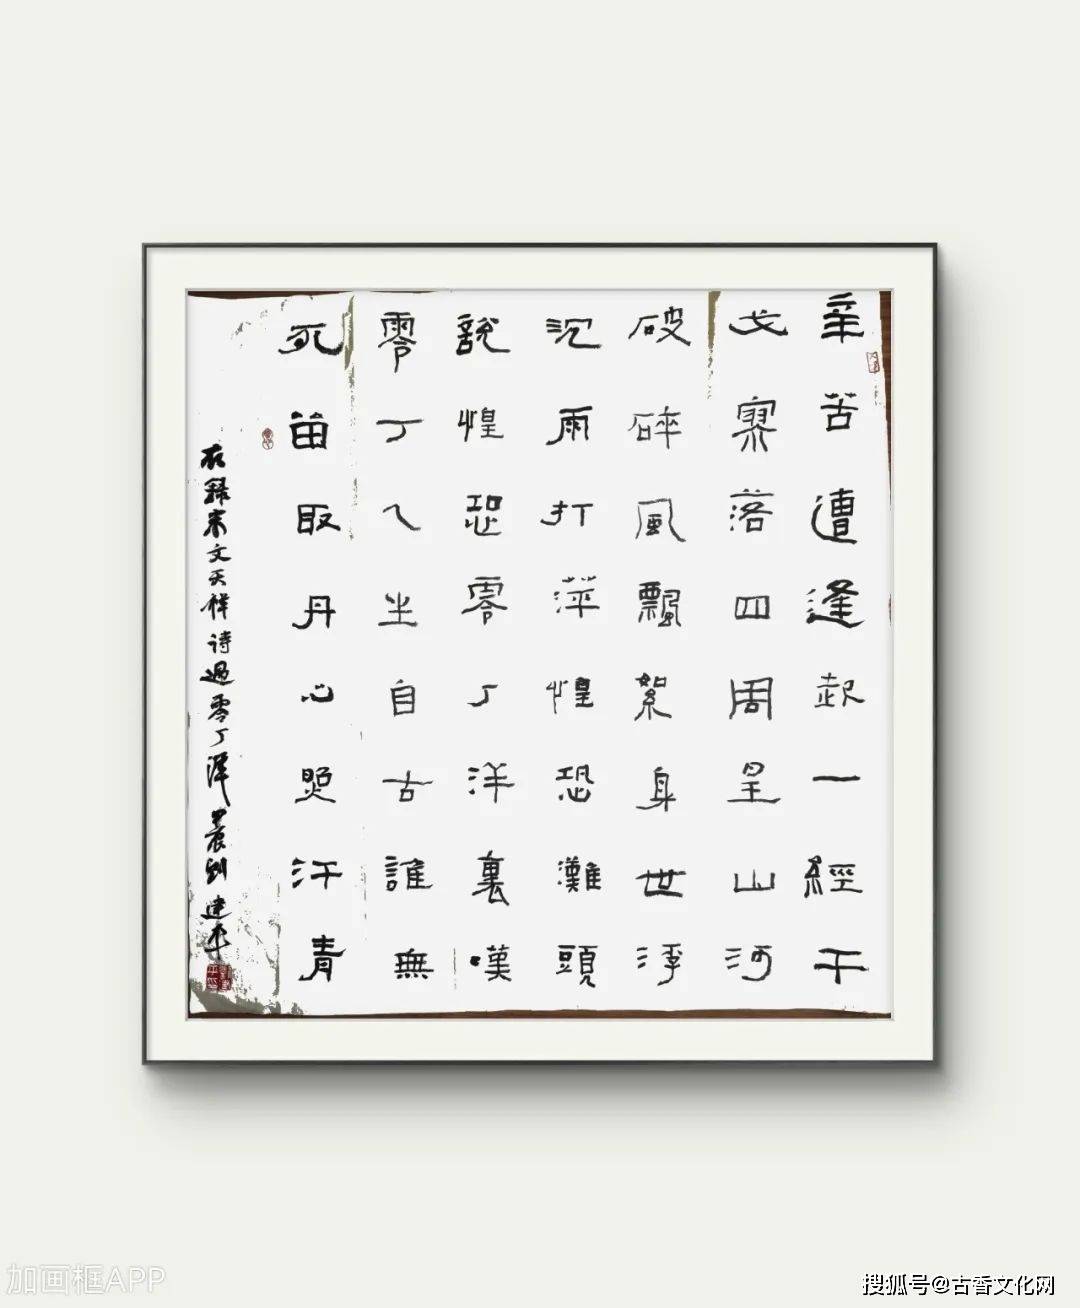 辛苦遭逢起一經干
戈寥落四周呈山河
破碎風飄絮身世浮
沉雨打萍惶恐灘頭
說惶恐零丁洋裏嘆
零丁人生自古誰無
死留取丹心照汗青
右錄宋文天祥诗過零丁洋 晨刿 建平
加画框APP
搜狐号@古香文化网